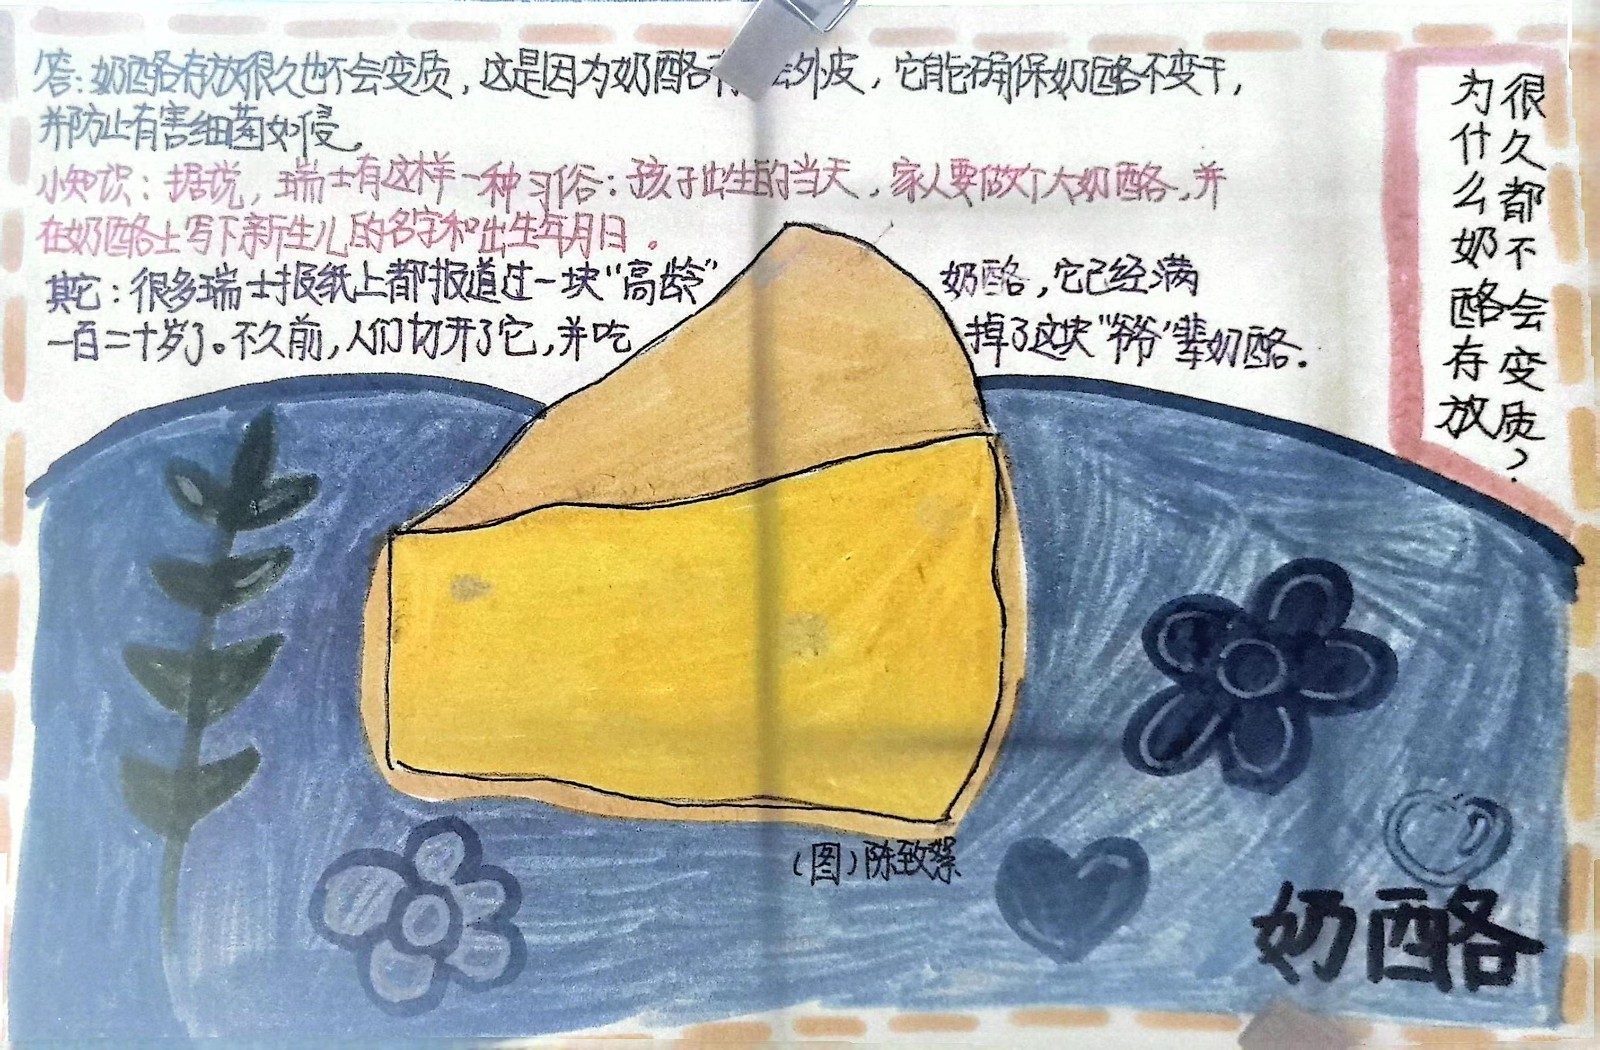 为什么奶酪存放
很久都不会变质？
答：奶酪存放很久也不会变质，这是因为奶酪有 外皮，它能确保奶酪不变干，
并防止有害细菌如侵。
小知识：据说，瑞士有这样一种习俗：孩子出生的当天，家人要做个大奶酪，并
在奶酪士写下新生儿的名字和出生年月日．
其它：很多瑞士报纸上都报道过一块“高龄”奶酪，它已经满
一百二十岁了。不久前，人们切开了它，并吃掉了这块“爷爷”辈奶酪．
（图）陈致
奶酪